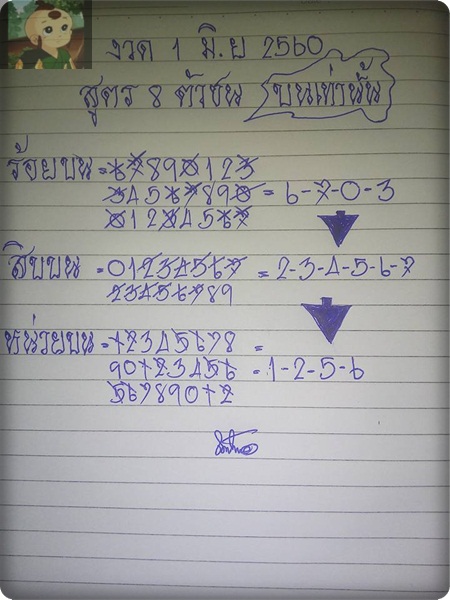 งวด 1 มิ.ย 2560
สูตร 8 ตัวชน บนเท่านั้น
ร้อยบน = 67890123
34567890 = 6-7-0-3
01234567
สิบบน = 01234567 = 2-3-4-5-6-7
23456789
หน่วยบน = 12345678 =
90123456 = 1-2-5-6
56789012